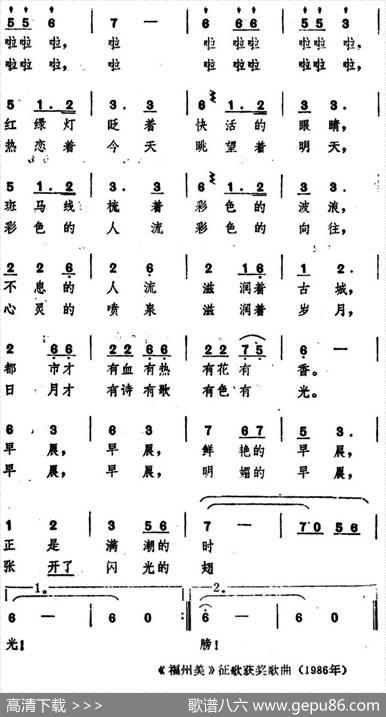 5 5 6 | 7 — | 6 6 6 | 5 5 3 |
啦啦 啦, 啦 啦 啦啦 啦啦 啦,
啦啦 啦, 啦 啦 啦啦 啦啦 啦,
5 1.2 | 3. 3 | 6 1.2 | 3 3. |
红 绿灯 眨 着 快 活的 眼 睛,
热 恋着 今 天 眺 望着 明 天,
5 1.2 | 3. 3 | 6 1.2 | 3 3. |
斑 马线 梳 着 彩 色的 波 浪,
彩 色的 人 流 彩 色的 向 往,
2 2 6 | 2 6 | 2 1 6 | 1 2. |
不 息的 人 流 滋 润着 古 城,
心 灵的 喷 泉 滋 润着 岁 月,
2 6 6 | 2 2 6 6 | 2 2 7 5 | 6 — |
都 市才 有血有热 有花有 香。
日 月才 有诗有歌 有色有 光。
6 3 | 6 3 | 7 6 7 | 5 3. |
早 晨, 早 晨, 鲜 艳的 早 晨,
早 晨, 早 晨, 明 媚的 早 晨,
1 2 | 3 5 6 | 7 — | 7 0 5 6 |
正 是 满 潮的 时
张 开了 闪 光的 翅
1. 2.
6 — | 6 0 :| 6 — | 6 0 ‖
光! 膀!
《福州美》征歌获奖歌曲(1986年)
高清下载 >>> 歌谱八六 www.gepu86.com